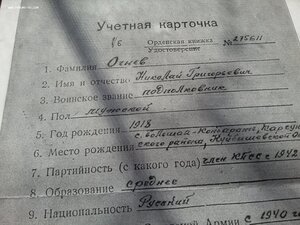 Учетная карточка
Орденская книжка № 275611
Удостоверение
1. Фамилия Огнев
2. Имя и отчество Николай Григорьевич
3. Воинское звание подполковник
4. Пол мужской
5. Год рождения 1918
6. Место рождения с.
ского района, Куйбышевской
7. Партийность (с какого года) член КПСС с 1942
8. Образование среднее
9. Национальность Русский
Армии с 1940